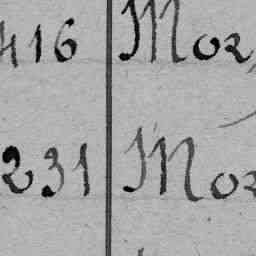 416 Mor
231 Mor